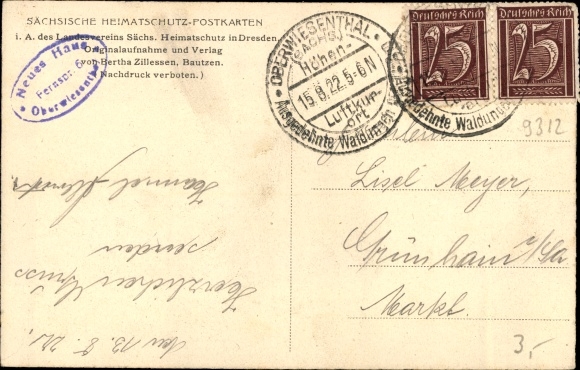 SÄCHSISCHE HEIMATSCHUTZ-POSTKARTEN
i. A. des Landesvereins Sächs. Heimatschutz in Dresden.
Originalaufnahme und Verlag
von Bertha Zillessen, Bautzen.
(Nachdruck verboten.)
Neues Haus
Fernspr.
Oberwiesenthal
OBERWIESENTHAL
(SACHS)
Höhen-
15.8.22.5-6N
Luftkur-
ort
Ausgedehnte Waldungen
Deutsches Reich
25
Deutsches Reich
25
Ausgedehnte Waldungen
9312
Fräulein
Lisel Meyer,
Grünhain i/Sa
Markt.
3,-
den 13. 8. 22.
Herzlichen Gruss
senden